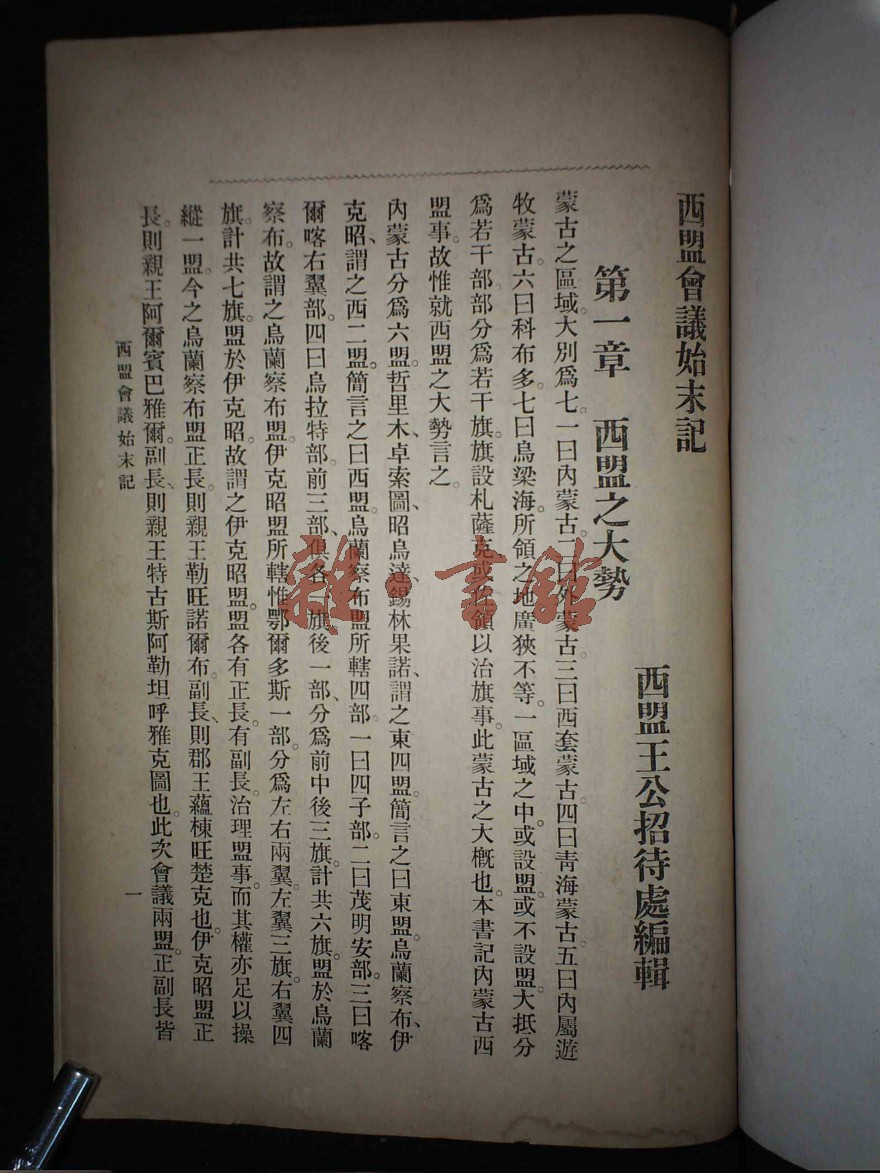 西盟會議始末記
西盟王公招待處編輯
第一章　西盟之大勢
蒙古之區域。大別爲七。一曰內蒙古。二曰外蒙古。三曰西套蒙古。四曰靑海蒙古。五曰內屬遊
牧蒙古。六曰科布多。七曰烏梁海。所領之地廣狹不等。一區域之中。或設盟。或不設盟。大抵分
爲若干部。部分爲若干旗。旗設札薩克或領以治旗事。此蒙古之大槪也。本書記內蒙古西
盟事。故惟就西盟之大勢言之。
內蒙古分爲六盟。哲里木、卓索圖、昭烏達、錫林果諾、謂之東四盟。簡言之曰東盟。烏蘭察布、伊
克昭、謂之西二盟。簡言之曰西盟。烏蘭察布盟所轄四部。一曰四子部。二曰茂明安部。三曰喀
爾喀右翼部。四曰烏拉特部。前三部、俱各一旗。後一部、分爲前中後三旗。計共六旗。盟於烏蘭
察布。故謂之烏蘭察布盟。伊克昭盟所轄惟鄂爾多斯一部。分爲左右兩翼。左翼三旗。右翼四
旗。計共七旗。盟於伊克昭。故謂之伊克昭盟。盟各有正長。有副長。治理盟事。而其權亦足以操
縱一盟。今之烏蘭察布盟正長。則親王勒旺諾爾布。副長、則郡王蘊棟旺楚克也。伊克昭盟正
長。則親王阿爾賓巴雅爾。副長、則親王特古斯阿勒坦呼雅克圖也。此次會議兩盟。正副長皆
西盟會議始末記
一
雜·書館